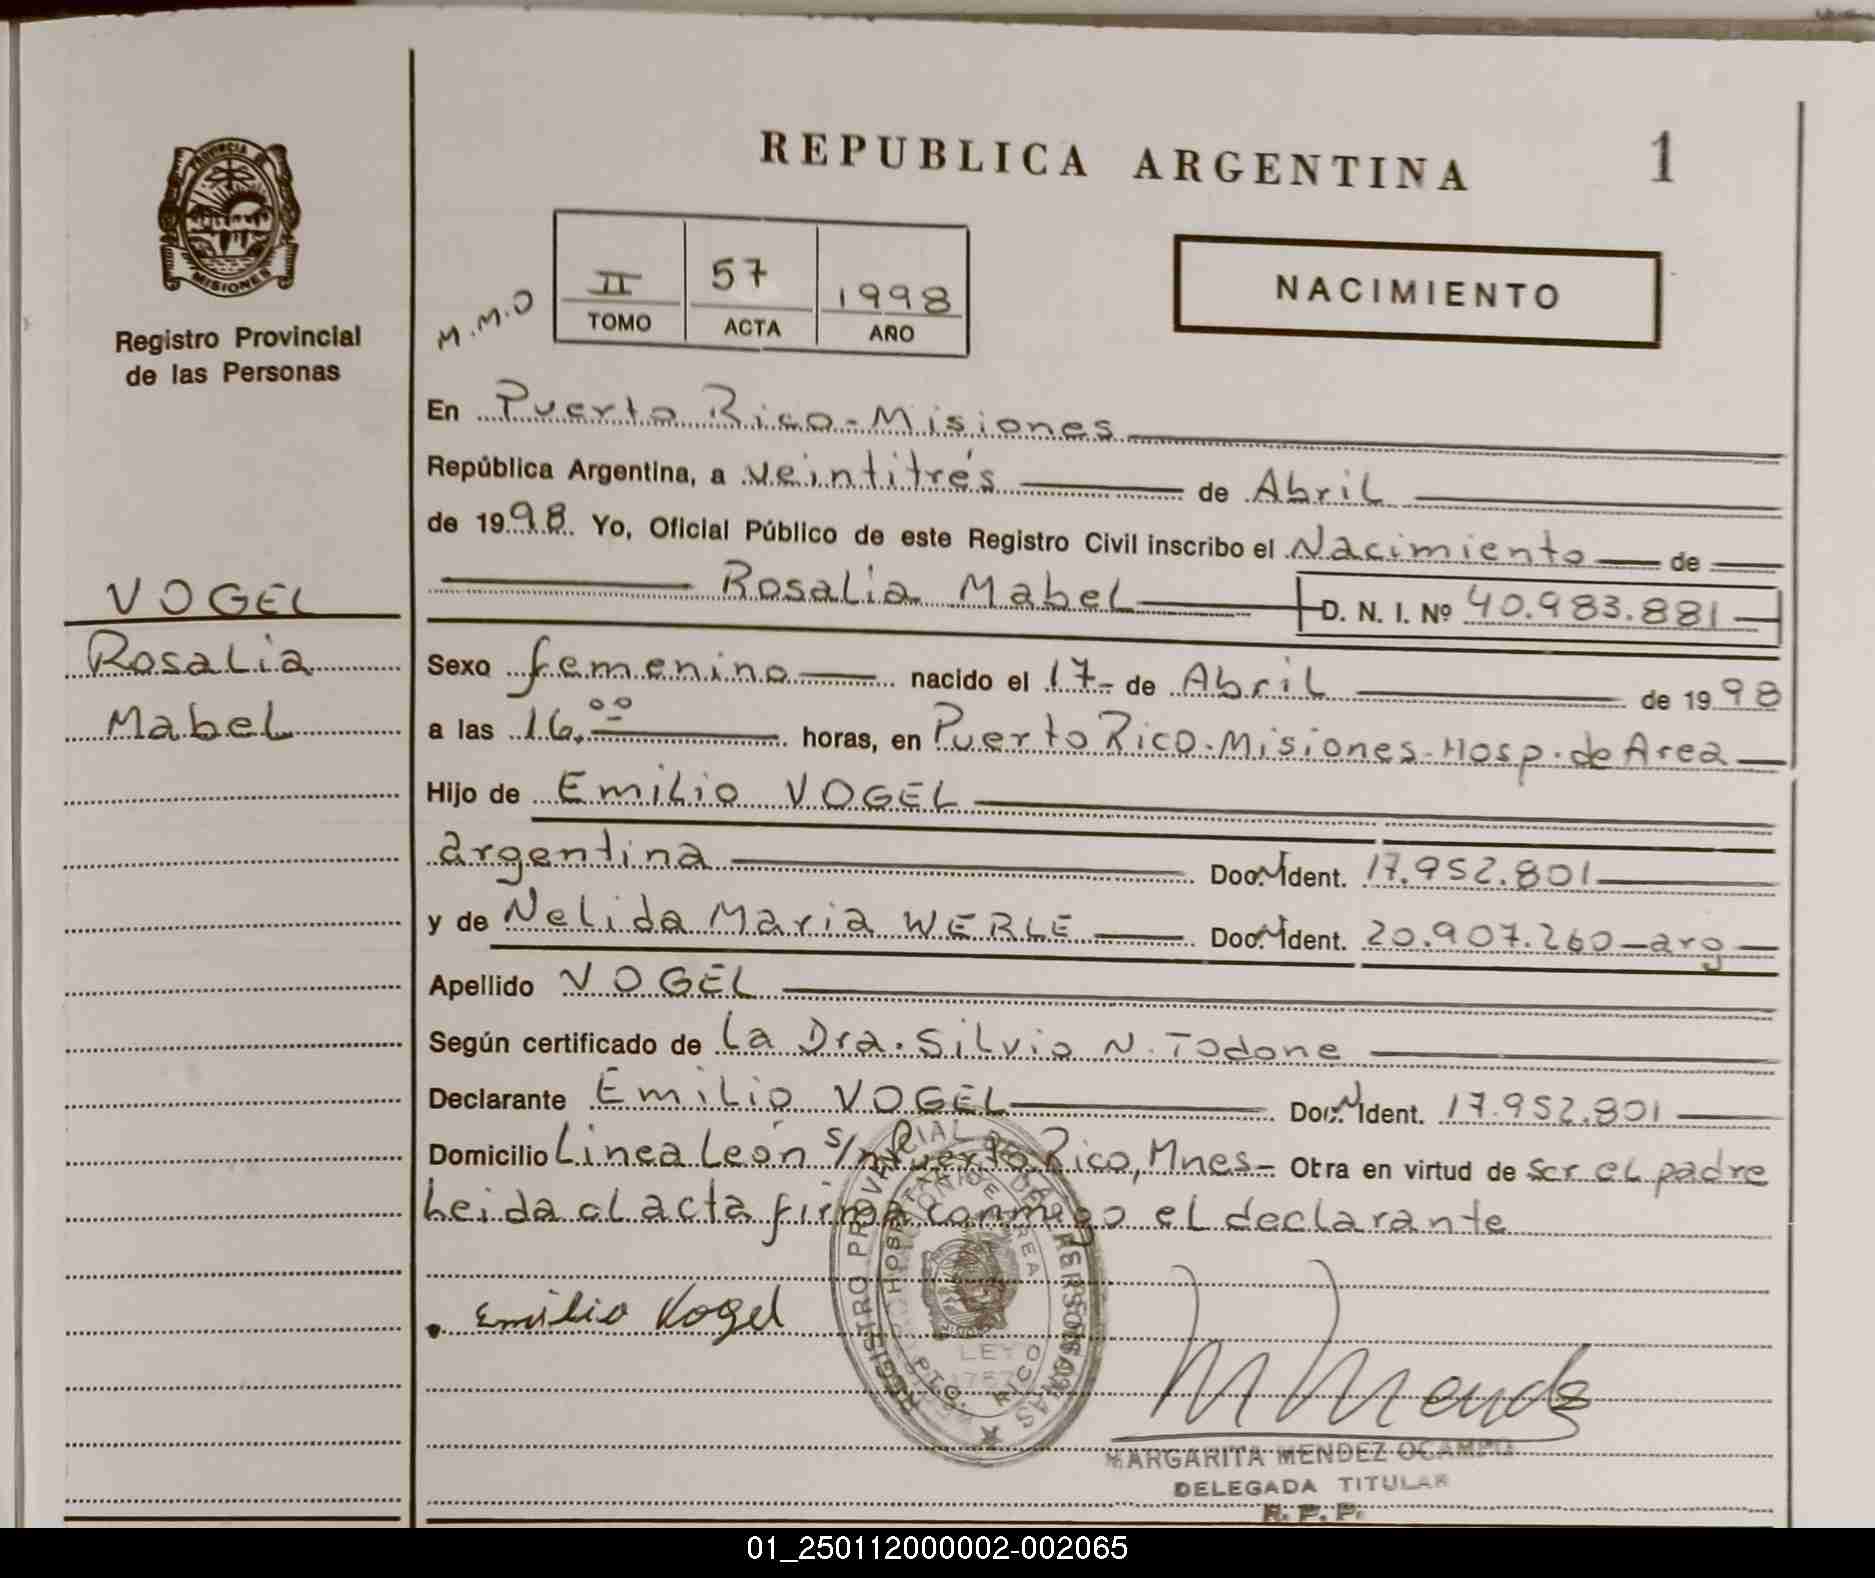 REPUBLICA ARGENTINA
1
PROVINCIA DE
MISIONES
Registro Provincial
de las Personas
M.M.O
II 57 1998
TOMO ACTA AÑO
NACIMIENTO
En Puerto Rico-Misiones
República Argentina, a veintitrés de Abril
de 1998. Yo, Oficial Público de este Registro Civil inscribo el Nacimiento de
Rosalia Mabel D. N. I. Nº 40.983.881
VOGEL
Rosalia
Mabel
Sexo femenino nacido el 17- de Abril de 1998
a las 16.00 horas, en Puerto Rico-Misiones-Hosp.de Area
Hijo de Emilio VOGEL
argentina Doc. Ident. 17.952.801
y de Nelida Maria WERLE Doc. Ident. 20.907.260-arg
Apellido VOGEL
Según certificado de la Dra. Silvio N. Todone
Declarante Emilio VOGEL Doc. Ident. 17.952.801
Domicilio Linea León s/n Puerto Rico, Mnes- Otra en virtud de ser el padre
Leida al acta firma conmigo el declarante
Emilio Vogel
REGISTRO PROVINCIAL DE LAS PERSONAS
HOSPITAL DE AREA
LEY
PTO. RICO
M Mendez
MARGARITA MENDEZ OCAMPO
DELEGADA TITULAR
R. P. P.
01_250112000002-002065